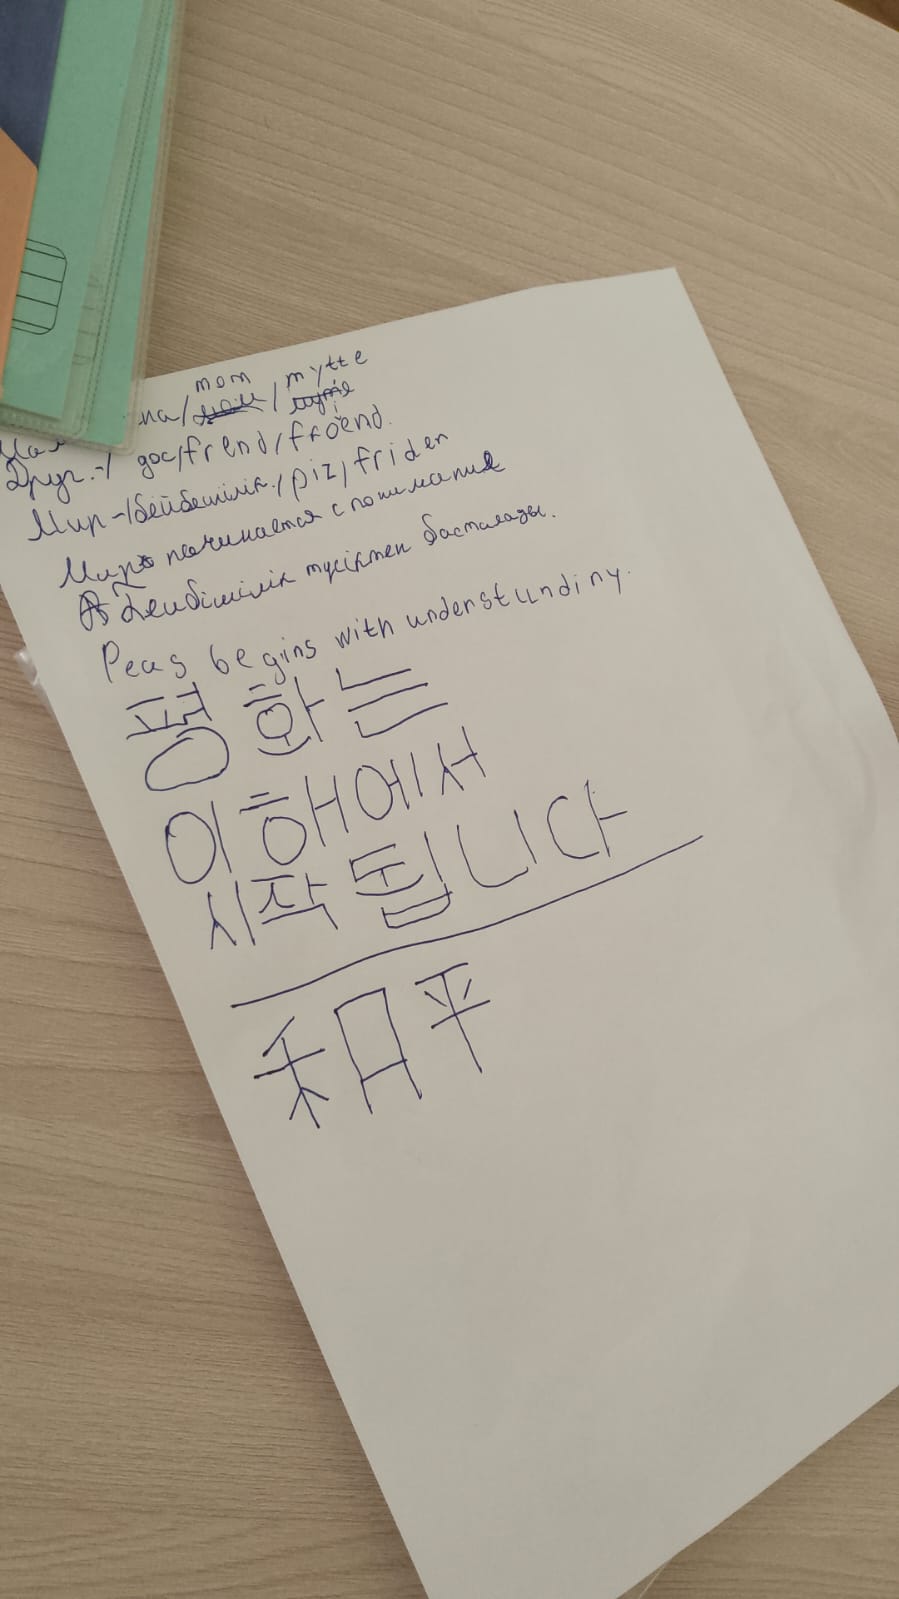 mom mytte
на/ /
Друг-/ дос/frend/froend.
Мир-/бейбешілік/piz/friden
Мир начинается с понимания
Бейбішілік түсіктен басталады.
Peas begins with understundiny.
평화는
이해에서
시작됩니다
和平